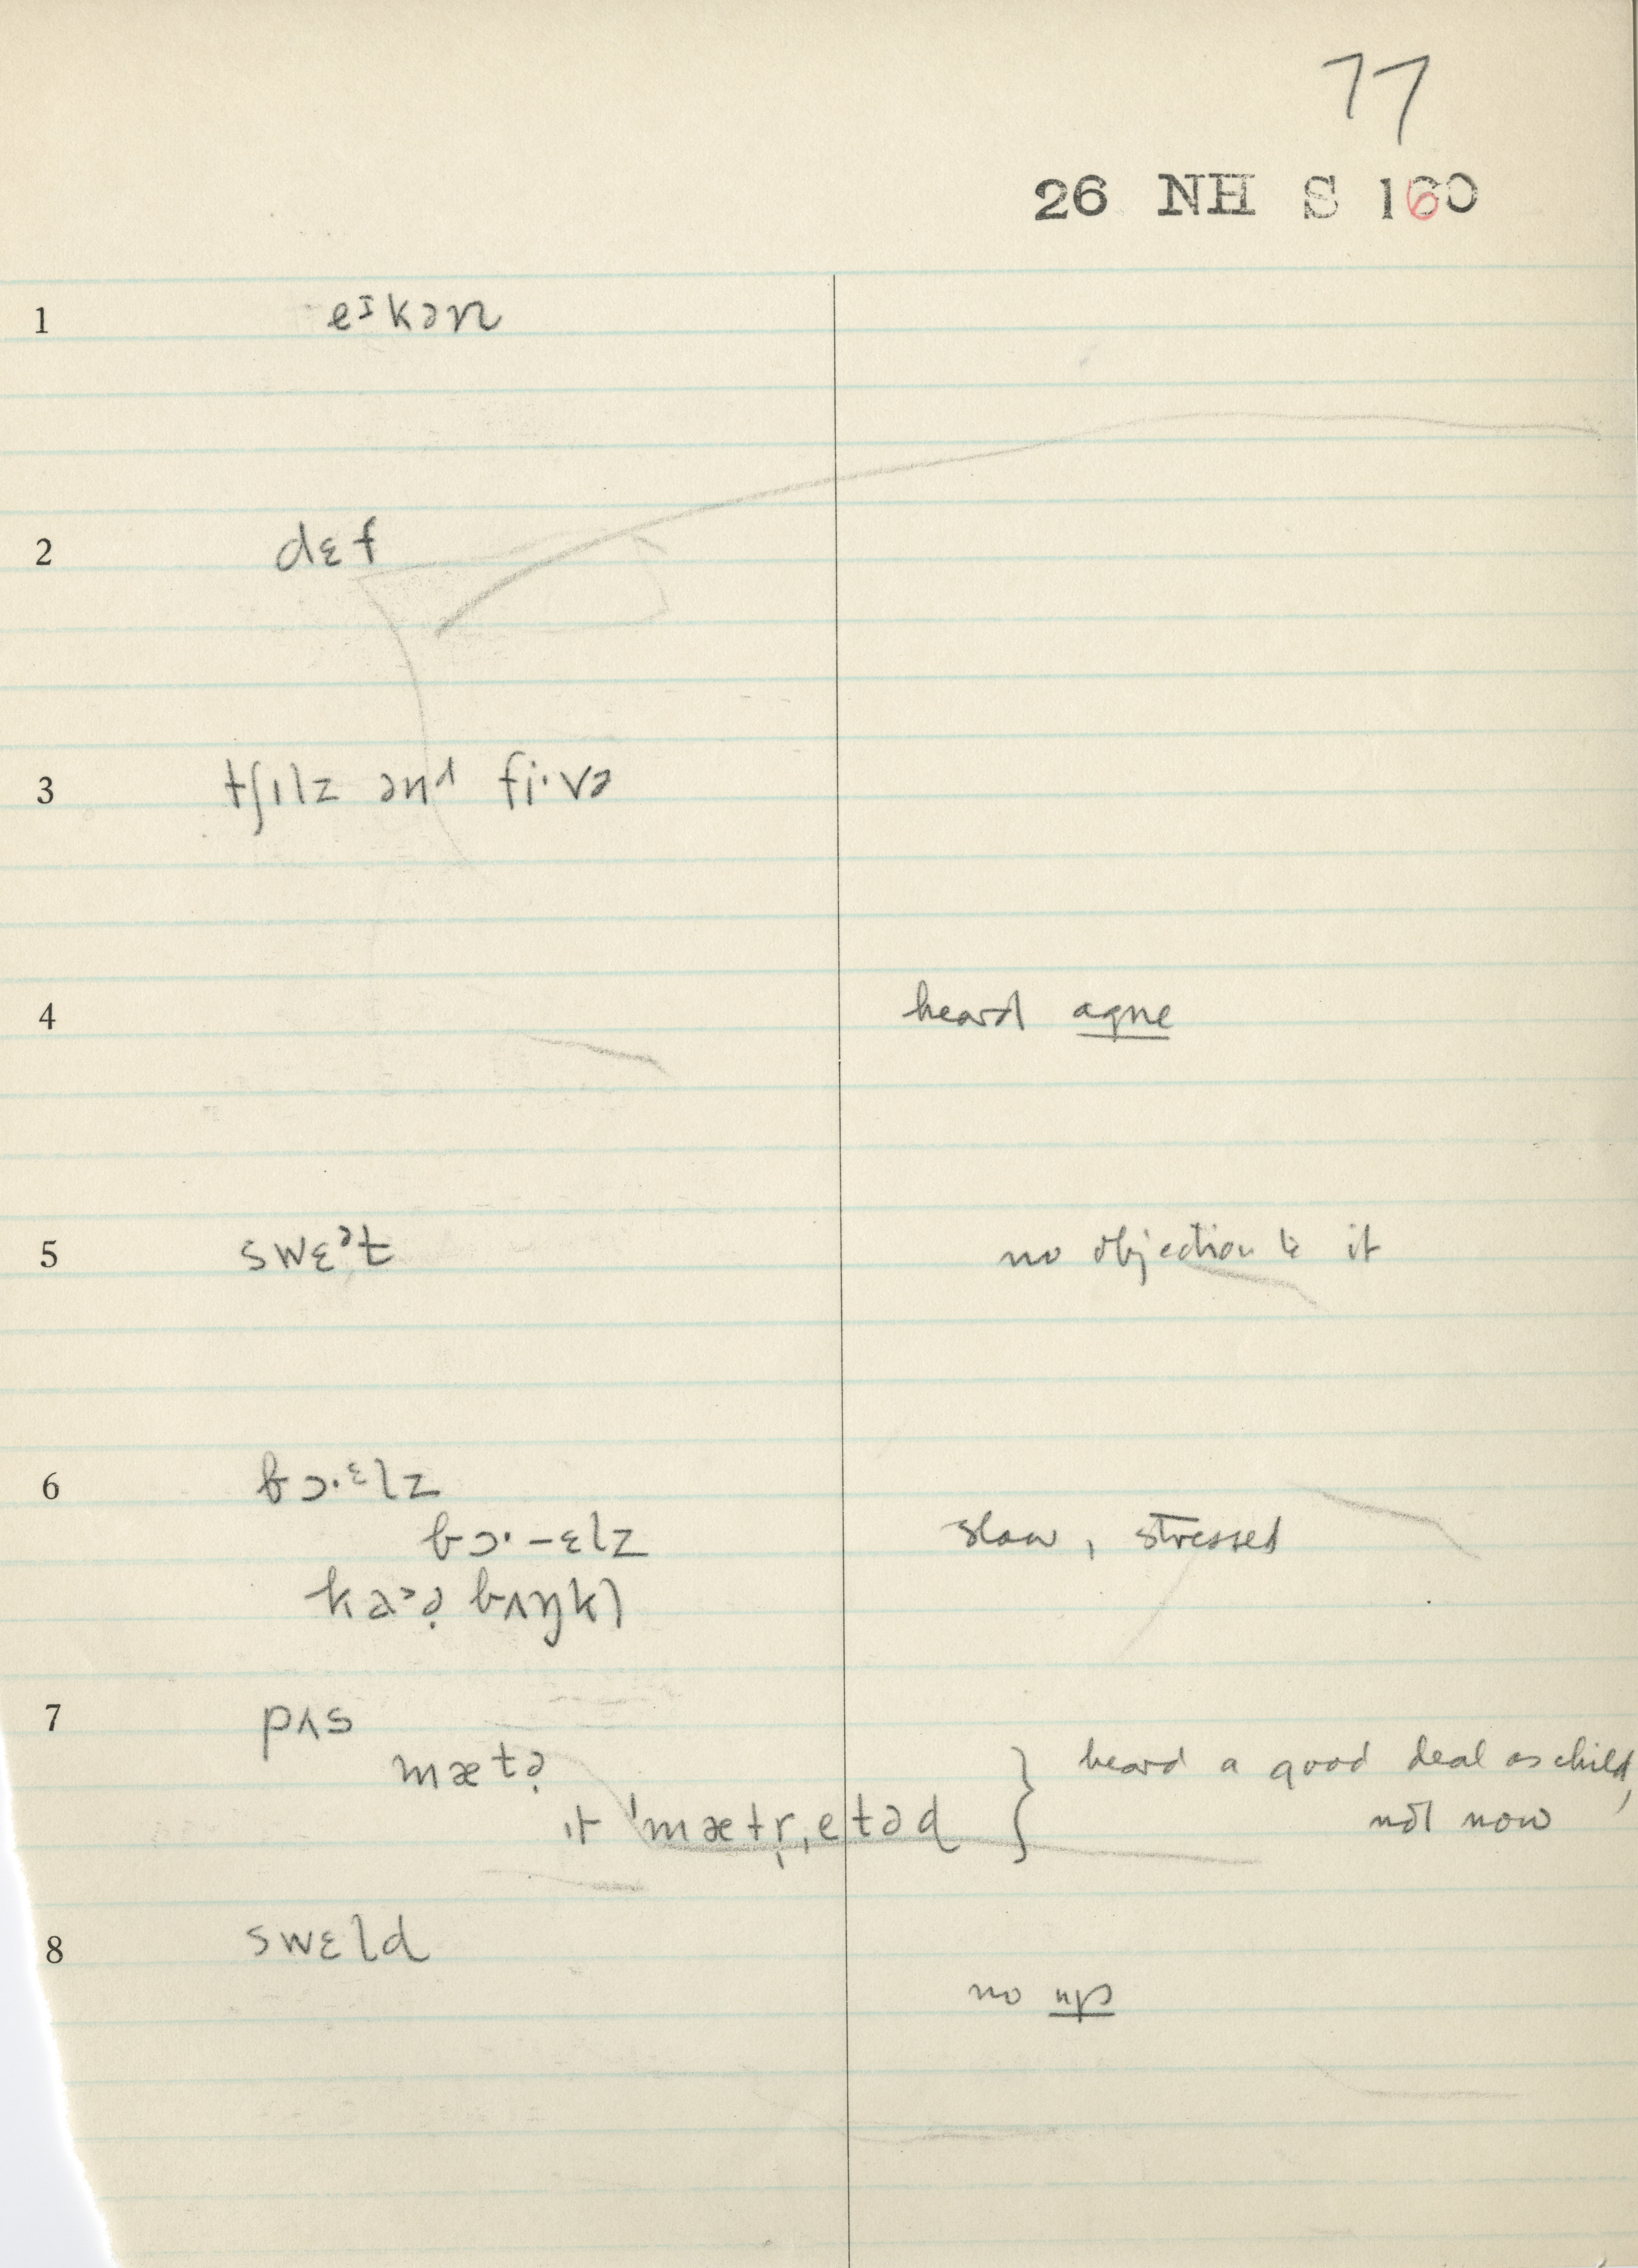 77
26 NH S 160
1 eɪkən
2 dɛf
3 tʃɪlz ənd fi·və
4 heard agne
5 swɛᵊt no objection to it
6 bɔ·ᵋlz
bɔ·–ɛlz slow, stressed
bʌŋkl
7 pʌs
mætə heard a good deal as child,
ɪt 'mætr̩ˌetəd } not now
8 swɛld
no up